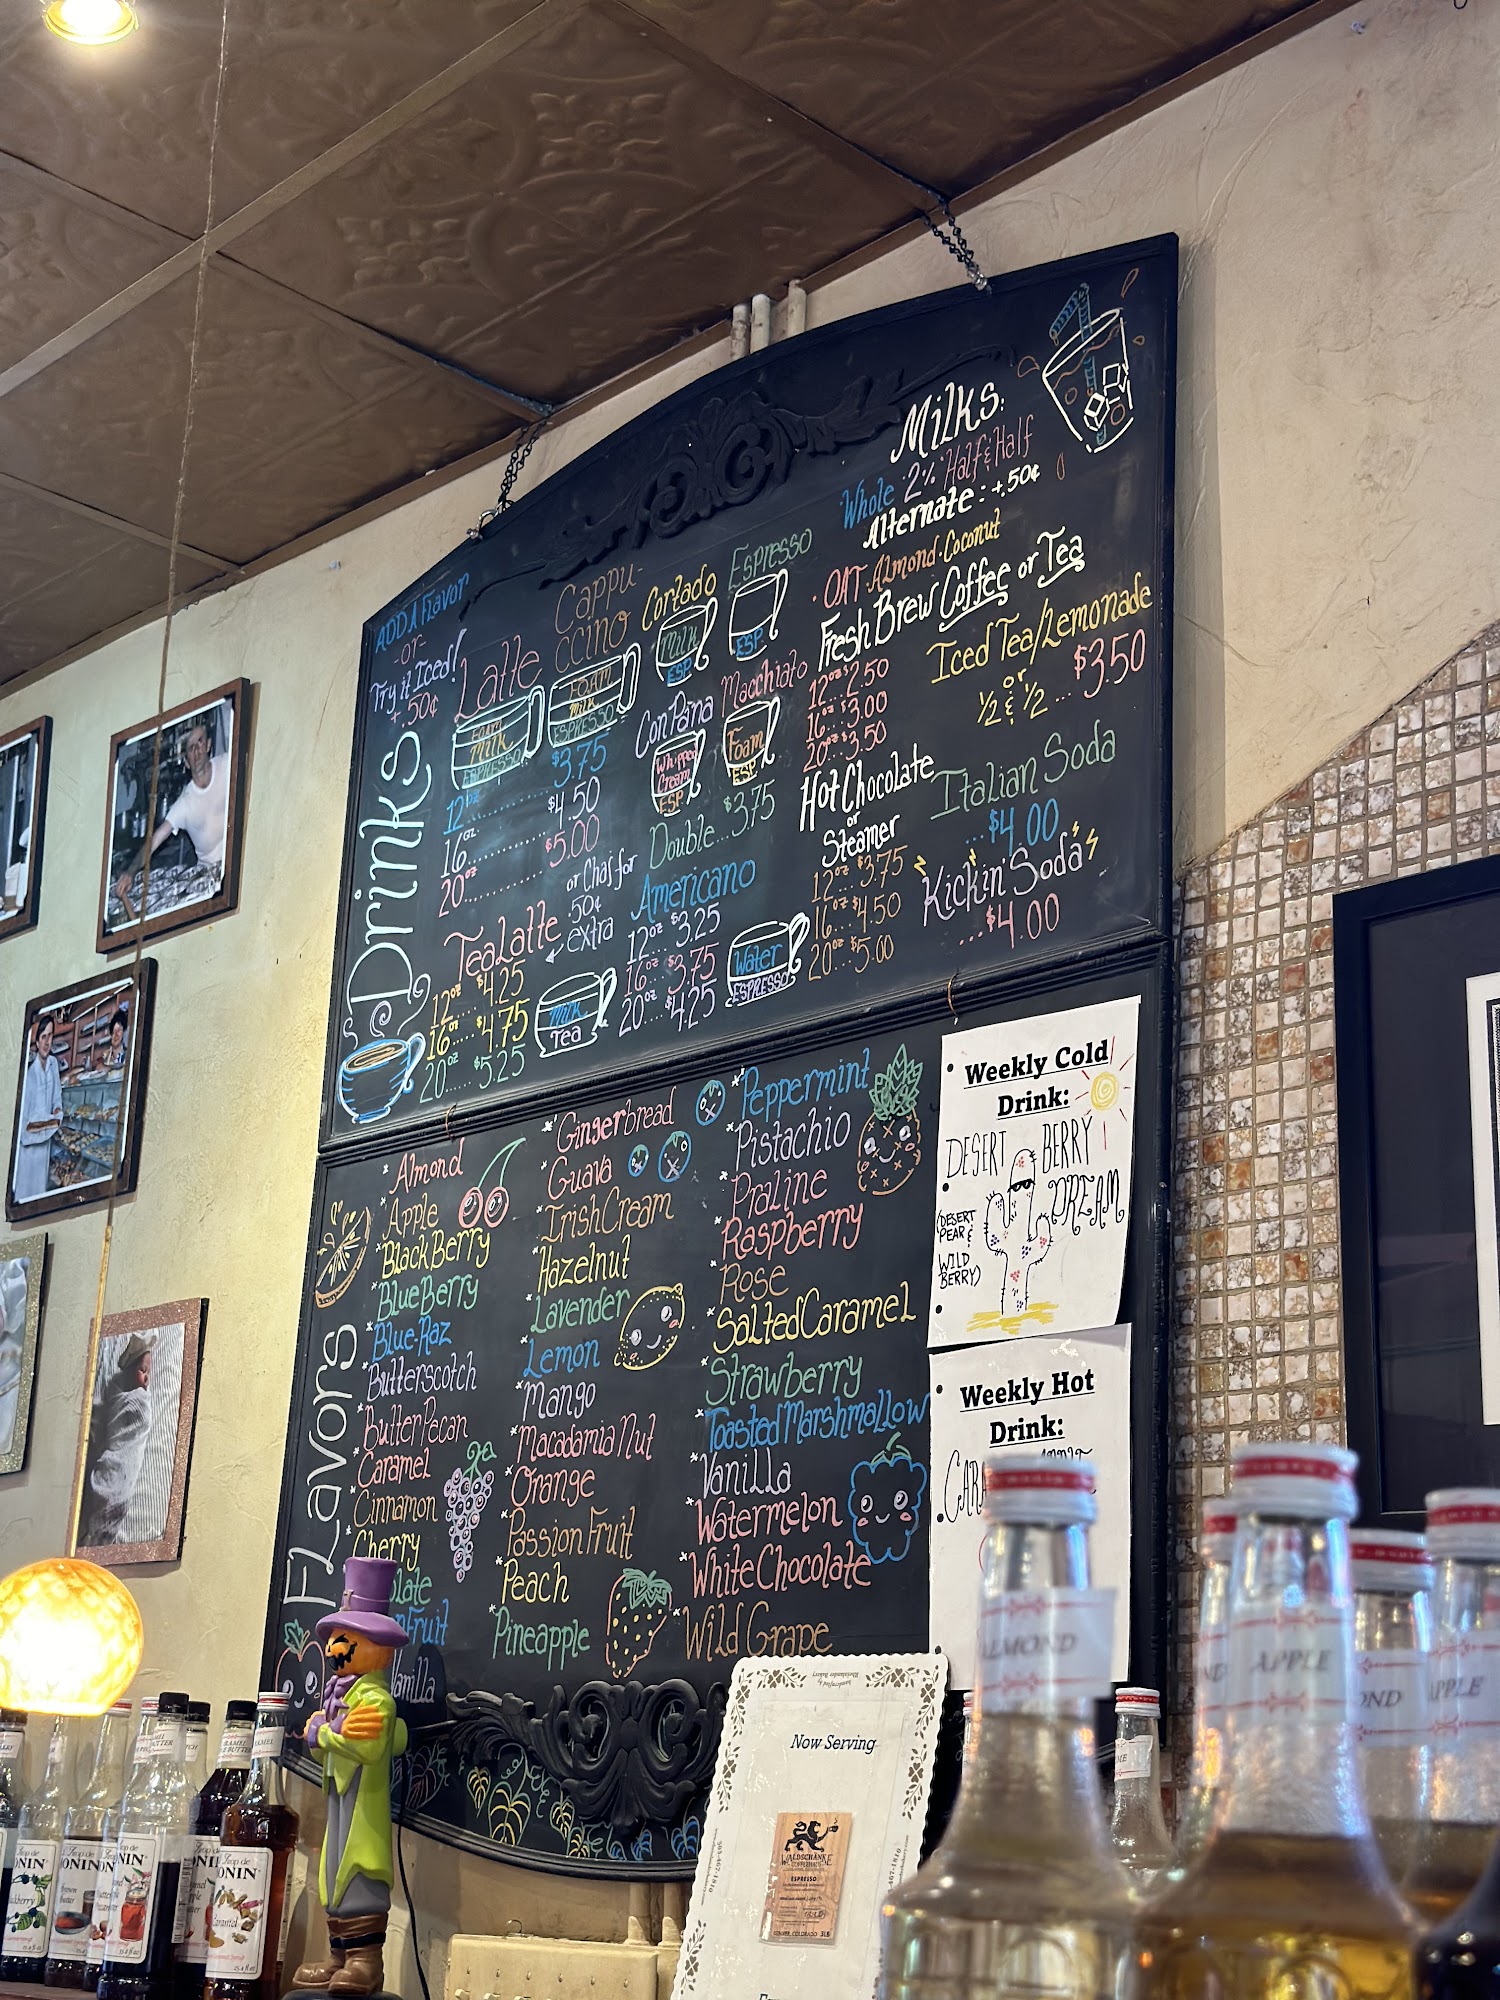 ADD A Flavor
-or-
Try it Iced!
+.50¢
Drinks
Latte
FOAM
Milk
ESPRESSO
Cappu-
ccino
FOAM
Milk
ESPRESSO
12oz
$3.75
16oz
$4.50
20oz
$5.00
Cortado
Milk
ESP
Espresso
ESP.
Con Pana
Whipped
Cream
ESP
Macchiato
Foam
ESP
Double...$3.75
Tea Latte
or Chai for
.50¢
extra
12oz $4.25
16oz $4.75
20oz $5.25
Milk
Tea
Americano
12oz $3.25
16oz $3.75
20oz $4.25
Water
ESPRESSO
Milks:
Whole · 2% · Half & Half
Alternate: +.50¢
· OAT · Almond · Coconut
Fresh Brew Coffee or Tea
12oz $2.50
16oz $3.00
20oz $3.50
Hot Chocolate
or
Steamer
12oz $3.75
16oz $4.50
20oz $5.00
Iced Tea/Lemonade
or
½ & ½ ... $3.50
Italian Soda
...$4.00
Kickin' Soda
...$4.00
Flavors
Almond
Apple
BlackBerry
BlueBerry
Blue Raz
Butterscotch
Butter Pecan
Caramel
Cinnamon
Cherry
Vanilla
Gingerbread
Guava
Irish Cream
Hazelnut
Lavender
Lemon
Mango
Macadamia Nut
Orange
Passion Fruit
Peach
Pineapple
Peppermint
Pistachio
Praline
Raspberry
Rose
Salted Caramel
Strawberry
Toasted Marshmallow
Vanilla
Watermelon
White Chocolate
Wild Grape
Weekly Cold
Drink:
DESERT BERRY
DREAM
(DESERT
PEAR &
WILD
BERRY)
Weekly Hot
Drink:
Now Serving
WALDSCHÄNKE
ESPRESSO
ALMOND
APPLE
APPLE
Caramel